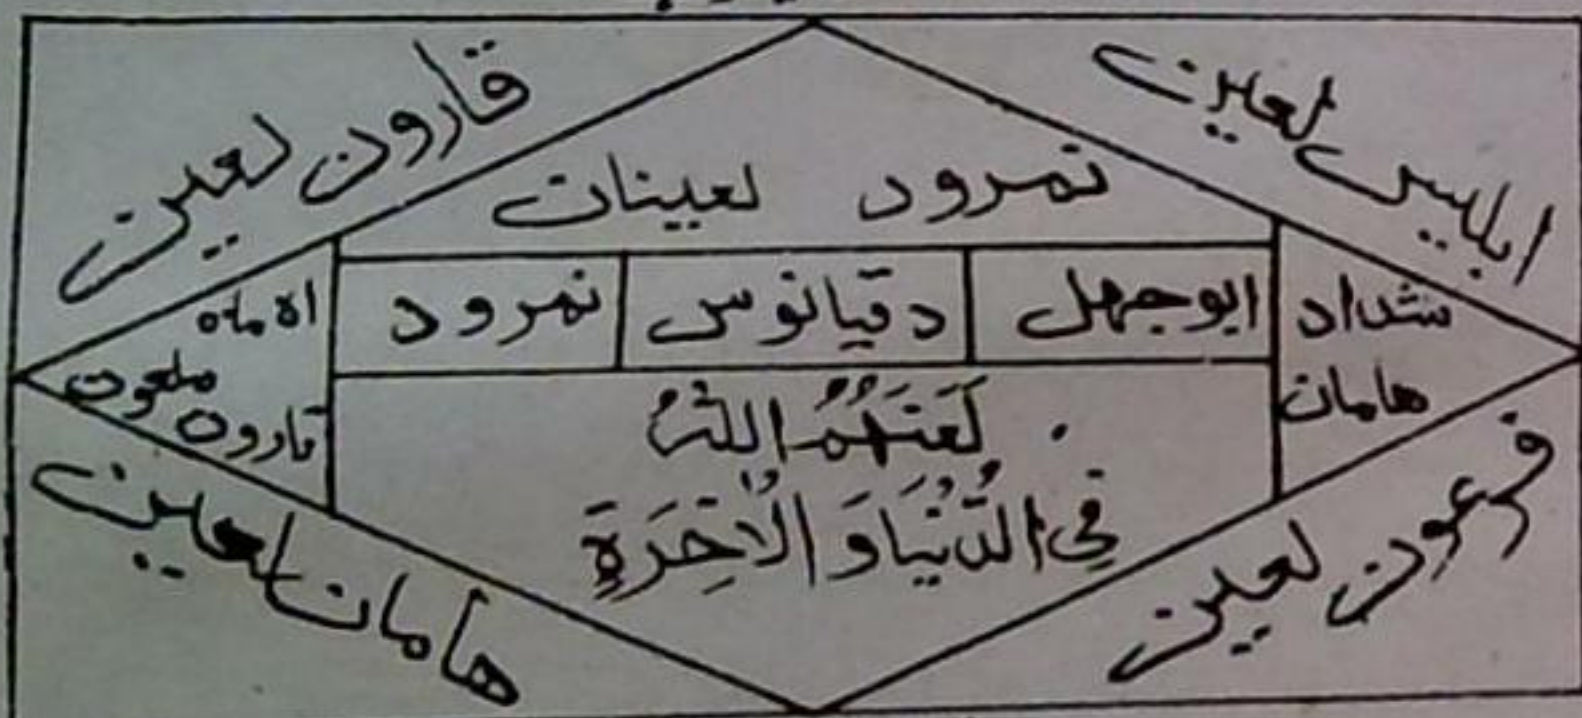 ابليس لعين
قارون لعين
نمرود لعينات
شداد
هامان
ابوجهل
دقيانوس
نمرود
ملعون
لَعَنَهُمُ اللّٰهُ
فِي الدُّنْيَا وَ الْاٰخِرَةِ
فرعون لعين
هامان لعين